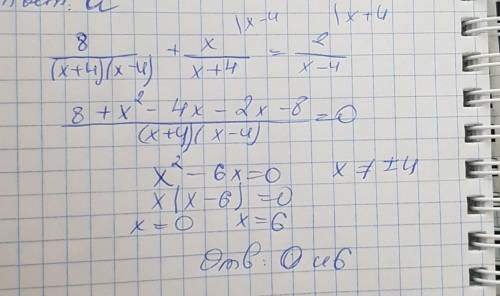 |x-4 |x+4
8/((x+4)(x-4)) + x/(x+4) = 2/(x-4)
(8+x²-4x-2x-8)/((x+4)(x-4)) = 0
x²-6x=0 x≠±4
x(x-6)=0
x=0 x=6
Отв: 0 и 6